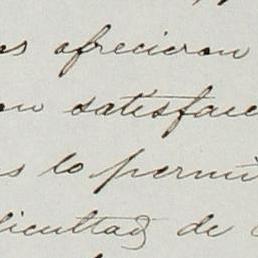 es ofrecieron
on satisfac
s lo permi
licultad de